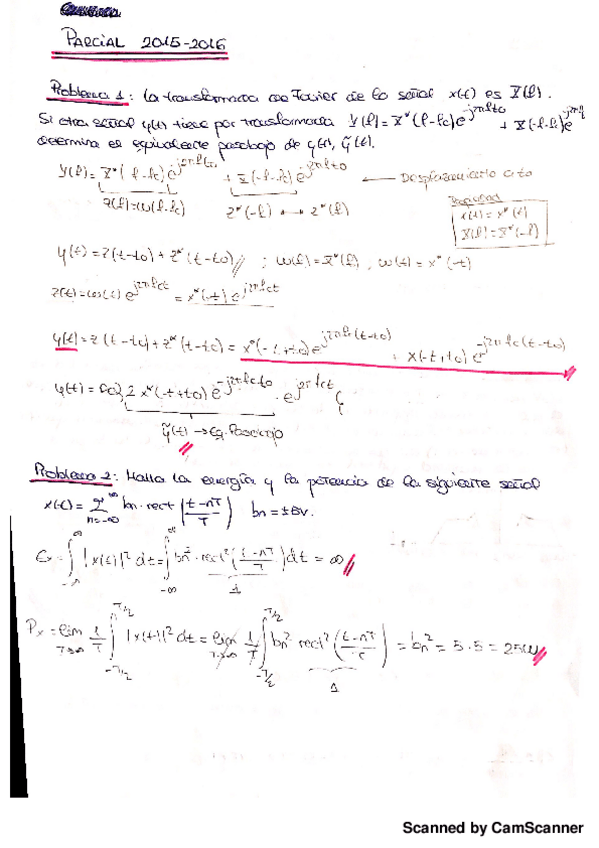 PARCIAL 2015-2016
Problema 1: La transformada de Fourier de la señal x(t) es X(f).
Si otra señal y(t) tiene por transformada Y(f)=X*(f-fc)e^{j2πft0} + X(-f-fc)e^{j2πf
determina el equivalente pasobajo de y(t), ỹ(t).
Y(f)=X*(f-fc)e^{j2πft0} + X(-f-fc)e^{j2πft0} ← Desplazamiento
Z(f)=W(f-fc) Z*(-f) ↔ z*(t)
Propiedad
x(t)=x*(t)
X(f)=X*(-f)
y(t)=z(t-t0)+z*(t-t0) ; W(f)=X*(f), w(t)=x*(-t)
z(t)=w(t)e^{j2πfct}=x*(-t)e^{j2πfct}
y(t)=z(t-t0)+z*(t-t0)=x*(-t+t0)e^{j2πfc(t-t0)} + x(-t+t0)e^{-j2πfc(t-t0)}
y(t)=Re{2x*(-t+t0)e^{-j2πfct0}·e^{j2πfct}}
ỹ(t) → Eq. Pasobajo
Problema 2: Halla la energía y la potencia de la siguiente señal
x(t)=∑_{n=-∞}^{∞} bn·rect((t-nT)/T) bn=±5v.
Ex=∫_{-∞}^{∞}|x(t)|²dt=∫_{-∞}^{∞}bn²·rect²((t-nT)/T)dt=∞
1
Px=lim_{T→∞} 1/T ∫_{-T/2}^{T/2}|x(t)|²dt=lim_{T→∞} 1/T ∫_{-T/2}^{T/2} bn² rect²((t-nT)/T)=bn²=5·5=25W
1
Scanned by CamScanner